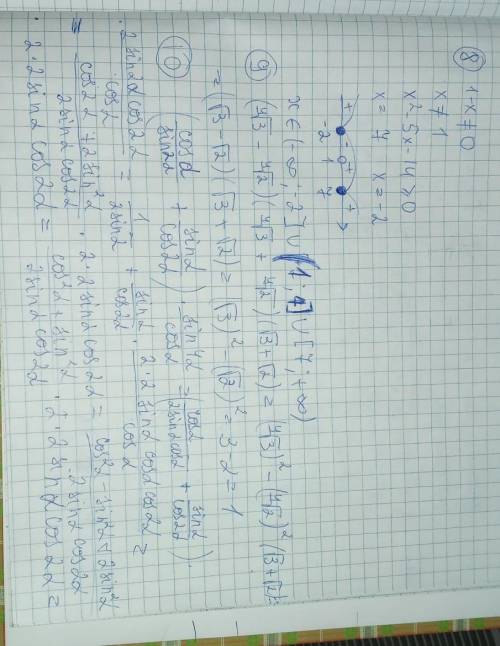 ⑧ 1-x≠0
x≠1
x²-5x-14≥0
x=7 x=-2
+ - 0 + +
-2 1 7
x∈(-∞;-2]∪ ∪[7;+∞)
⑨ (∜3-∜2)(∜3+∜2)(√3+√2)=((∜3)²-(∜2)²(√3+√2)=
=(√3-√2)(√3+√2)=(√3)²-(√2)²=3-2=1
⑩ (cosα/sin2α + sinα/cos2α)·sin4α/cosα=(cosα/2sinαcosα + sinα/cos2α)·
·2sin2αcos2α/cosα = 1/2sinα + sinα/cos2α · 2·2sinαcosαcos2α/cosα =
= cos2α+2sin²α/2sinαcos2α · 2·2sinαcos2α = cos²α-sin²α+2sin²α/2sinαcos2α ·
·2·2sinαcos2α = cos²α+sin²α/2sinαcos2α ·2·2sinαcos2α=